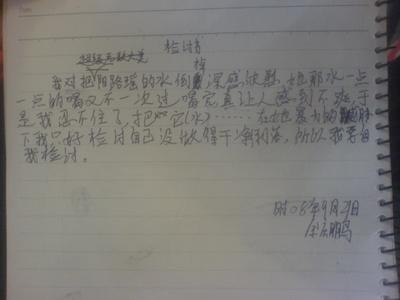 检讨书
我对把阳路瑶的水倒掉深感欣慰,她那水一点
一点的喝又不一次过喝完真让人感到不爽于
是我忍不住了,把它(水)……在她暴力的
下我只好检讨自己没做得干净利落,所以我要自
我检讨。
时08年9月29日